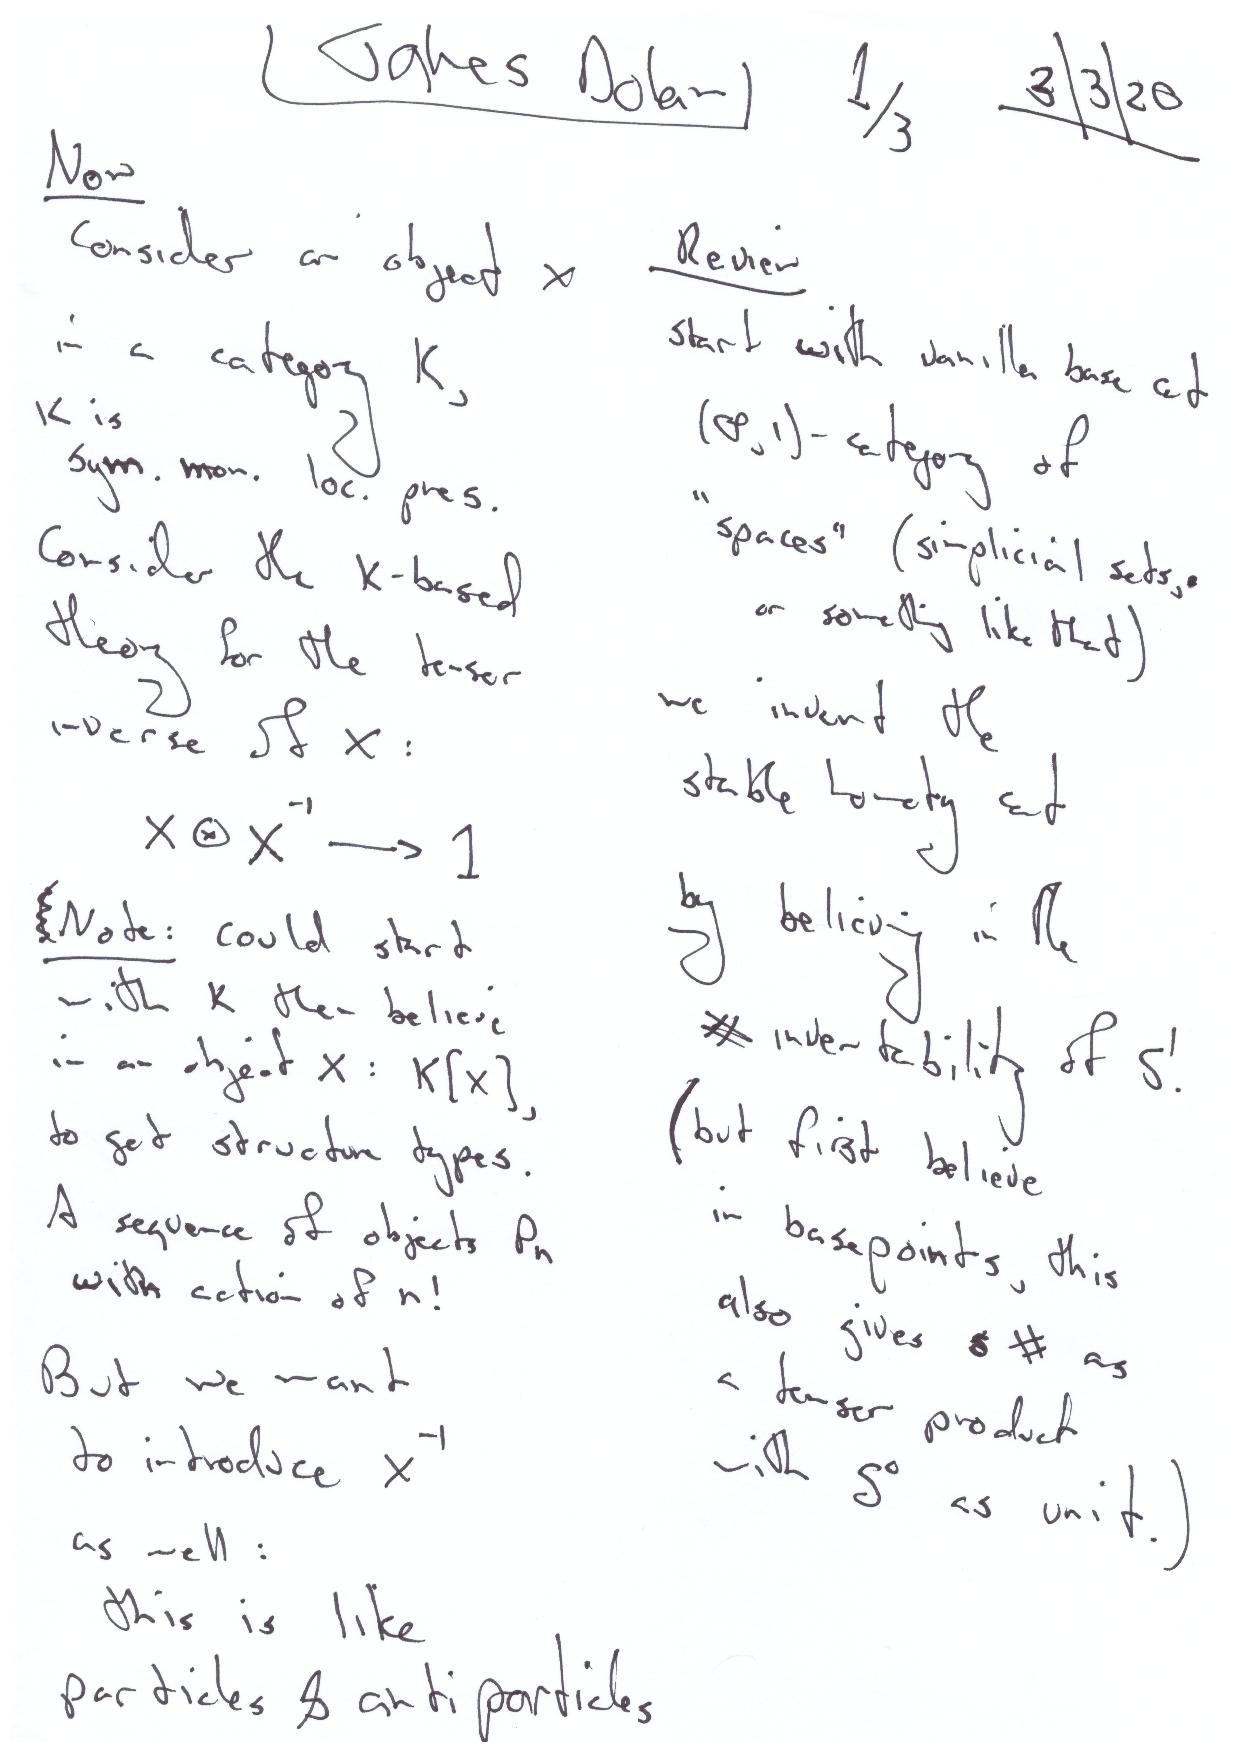 James Dolan 1/3 3/3/20
Now
Consider an object x
in a category K,
K is
sym. mon. loc. pres.
Consider the K-based
theory for the tensor
inverse of x:
x ⊗ x⁻¹ → 1
Note: could start
with K then believe
in an object x: K[x],
to get structure types.
A sequence of objects Pn
with action of n!
But we want
to introduce x⁻¹
as well:
this is like
particles & antiparticles
Review
start with vanilla base cat
(∞,1)-category of
"spaces" (simplicial sets,
or something like that)
we invent the
stable homotopy cat
by believing in the
invertability of S¹.
(but first believe
in basepoints, this
also gives # as
a tensor product
with S⁰ as unit.)